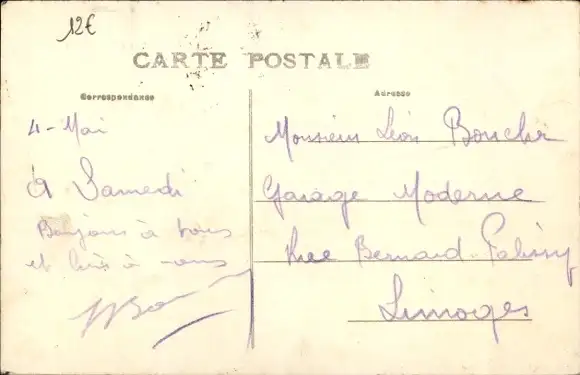 12€
CARTE POSTALE
Correspondance
Adresse
4 - Mai
A Samedi
Bonjour à tous
et à vous
Monsieur Léon Boucher
Garage Moderne
Rue Bernard-Palissy
Limoges